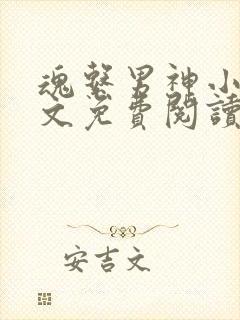 魂繫男神小
文免費閱讀
安吉文